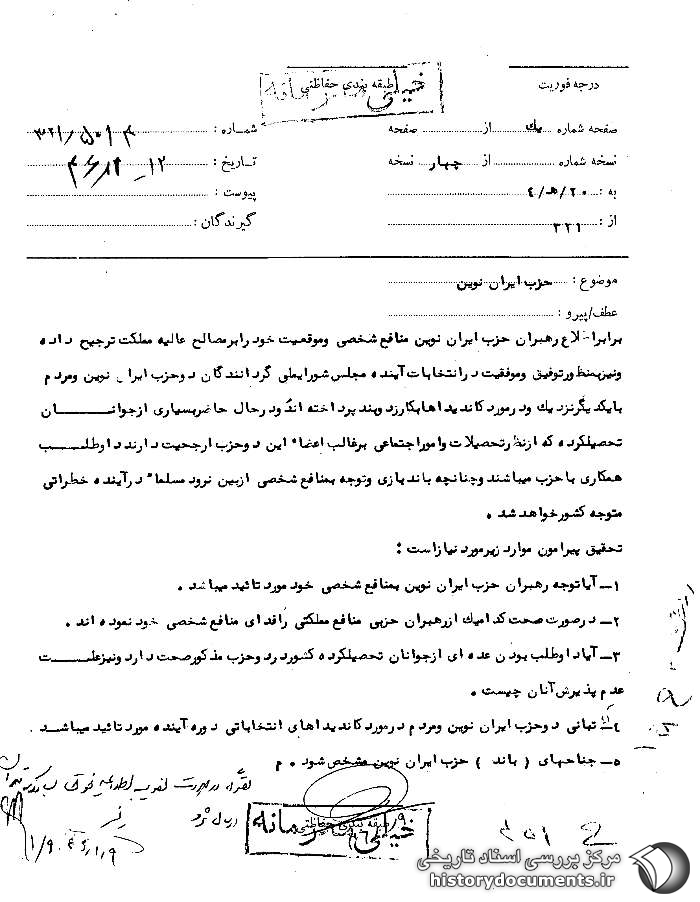 درجه فوریت
طبقه بندی حفاظتی
خیلی محرمانه
صفحه شماره یك از صفحه
نسخه شماره از چهار نسخه
به : ۲۰/ه‍/۴
از : ۳۲۱
شماره :
تاریخ :
پیوست :
گیرندگان :
موضوع : حزب ایران نوین
عطف/پیرو :
برابر اطلاع رهبران حزب ایران نوین منافع شخصی وموقعیت خود رابر مصالح عالیه مملکت ترجیح داده
ونیز بمنظور توفیق وموفقیت در انتخابات آینده مجلس شورایملی گردانندگان دوحزب ایران نوین ومردم
بایکدیگر نزدیك ودر مورد کاندیداها بکار زد وبند پرداخته اند ودر حال حاضر بسیاری از جوانان
تحصیلکرده که از نظر تحصیلات وامور اجتماعی بر غالب اعضاء این دوحزب ارجحیت دارند داوطلب
همکاری با حزب میباشند وچنانچه باند بازی وتوجه بمنافع شخصی ازبین نرود مسلماً در آینده خطراتی
متوجه کشور خواهد شد .
تحقیق پیرامون موارد زیر مورد نیاز است :
۱ـ آیا توجه رهبران حزب ایران نوین بمنافع شخصی خود مورد تائید میباشد .
۲ـ در صورت صحت کدامیك از رهبران حزبی منافع مملکتی را فدای منافع شخصی خود نموده اند .
۳ـ آیا داوطلب بودن عده ای از جوانان تحصیلکرده کشور در دوحزب مذکور صحت دارد ونیز علت
عدم پذیرش آنان چیست .
۴ـ تبانی دوحزب ایران نوین ومردم در مورد کاندیداهای انتخاباتی دوره آینده مورد تائید میباشد .
۵ـ جناحهای ( باند ) حزب ایران نوین مشخص شود . م
طبقه بندی حفاظتی
خیلی محرمانه
مرکز بررسی اسناد تاریخی
historydocuments.ir